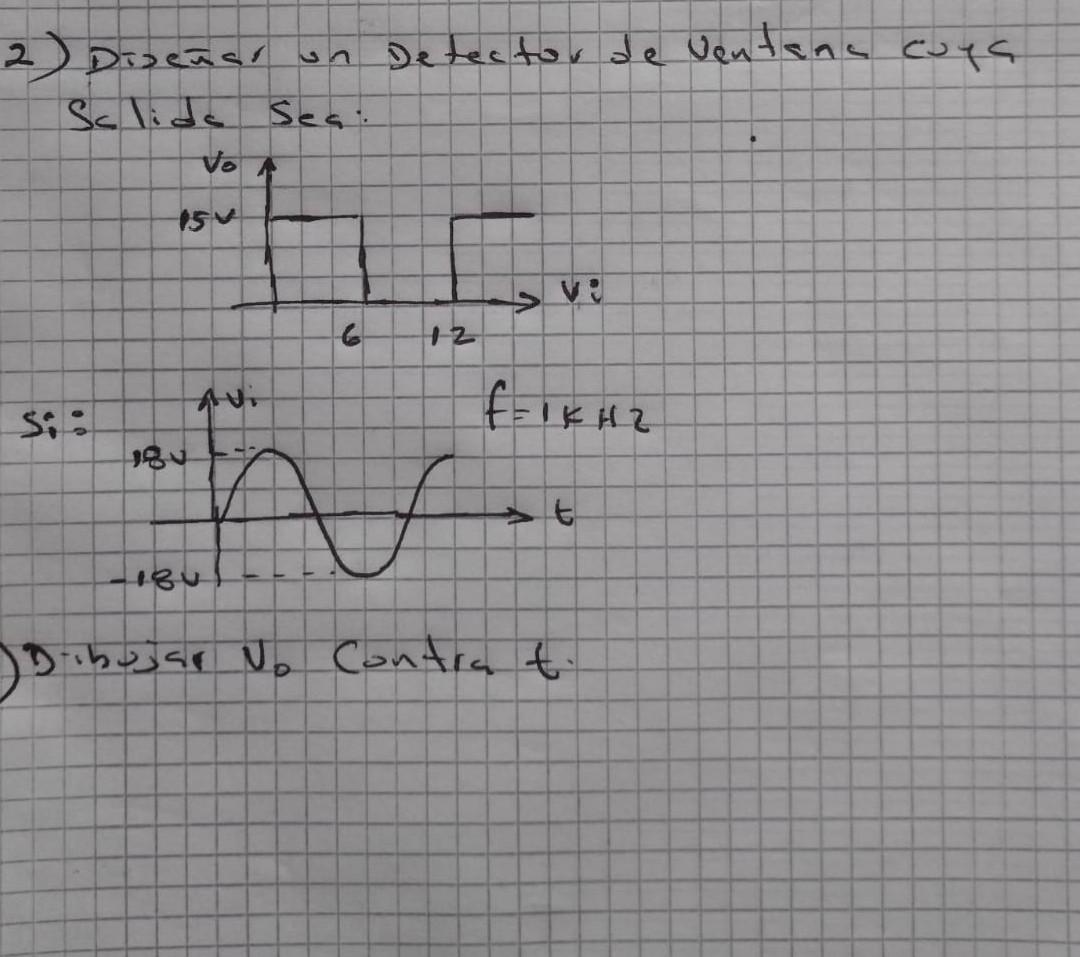 2) Diseñar un Detector de Ventana cuya
Salida Sea:
Vo
15V
Vi
6 12
Si: Vi f=1KHz
18V
t
-18V
) Dibujar Vo Contra t.